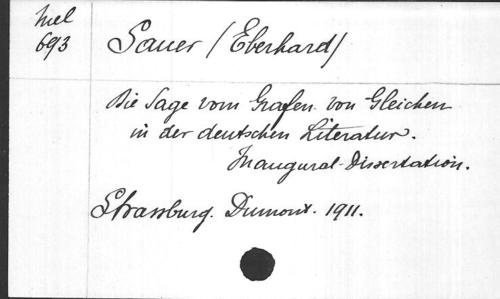 Mel
693
Sauer /Eberhard/
Die Sage vom Grafen von Gleichen
in der deutschen Literatur.
Inaugural-Dissertation.
Strassburg. Dumont. 1911.